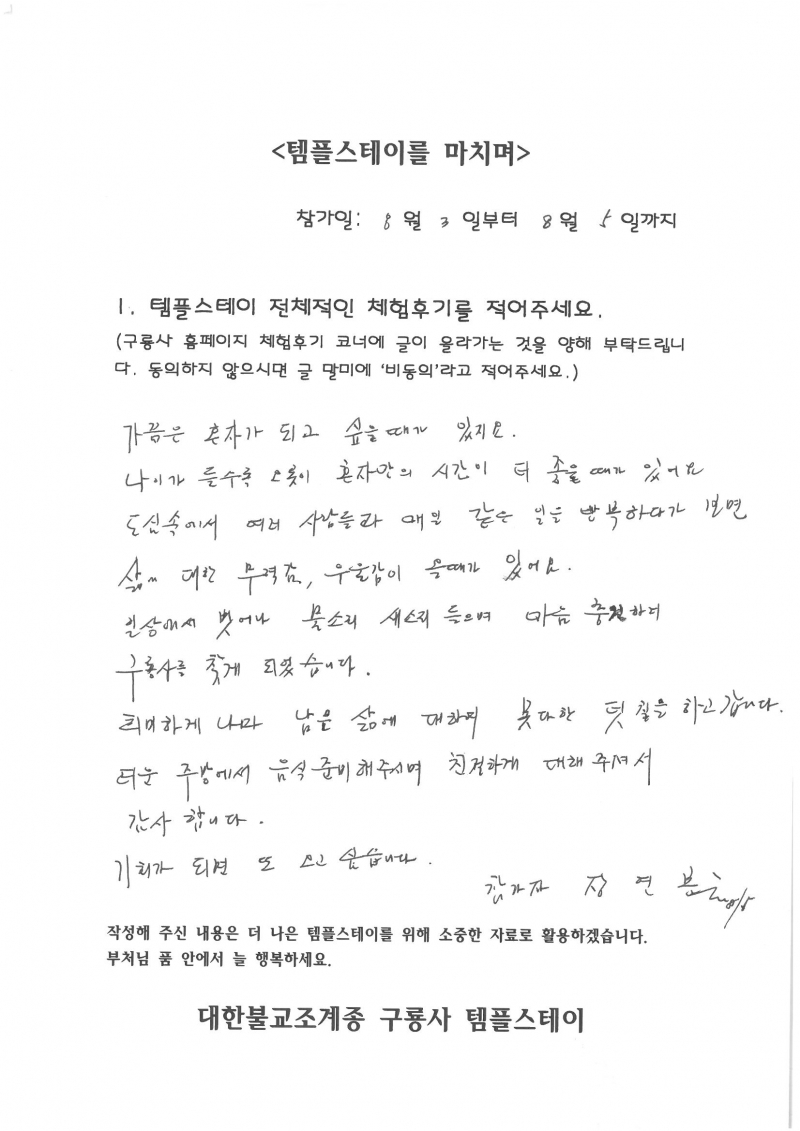 <템플스테이를 마치며>
참가일: 8 월 3 일부터 8 월 5 일까지
1. 템플스테이 전체적인 체험후기를 적어주세요.
(구룡사 홈페이지 체험후기 코너에 글이 올라가는 것을 양해 부탁드립니
다. 동의하지 않으시면 글 말미에 '비동의'라고 적어주세요.)
가끔은 혼자가 되고 싶을때가 있지요.
나이가 들수록 오롯이 혼자만의 시간이 더 좋을때가 있어요
도심속에서 여러 사람들과 매일 같은 일을 반복하다가 보면
삶에 대한 무력감, 우울감이 올때가 있어요.
일상에서 벗어나 물소리 새소리 들으며 마음 충전하러
구룡사를 찾게 되었습니다.
희미하게 나마 남은 삶에 대하여 못다한 덧칠을 하고 갑니다.
더운 주방에서 음식준비해주시며 친절하게 대해 주셔서
감사 합니다.
기회가 되면 또 오고 싶습니다.
참가자 장 연
작성해 주신 내용은 더 나은 템플스테이를 위해 소중한 자료로 활용하겠습니다.
부처님 품 안에서 늘 행복하세요.
대한불교조계종 구룡사 템플스테이